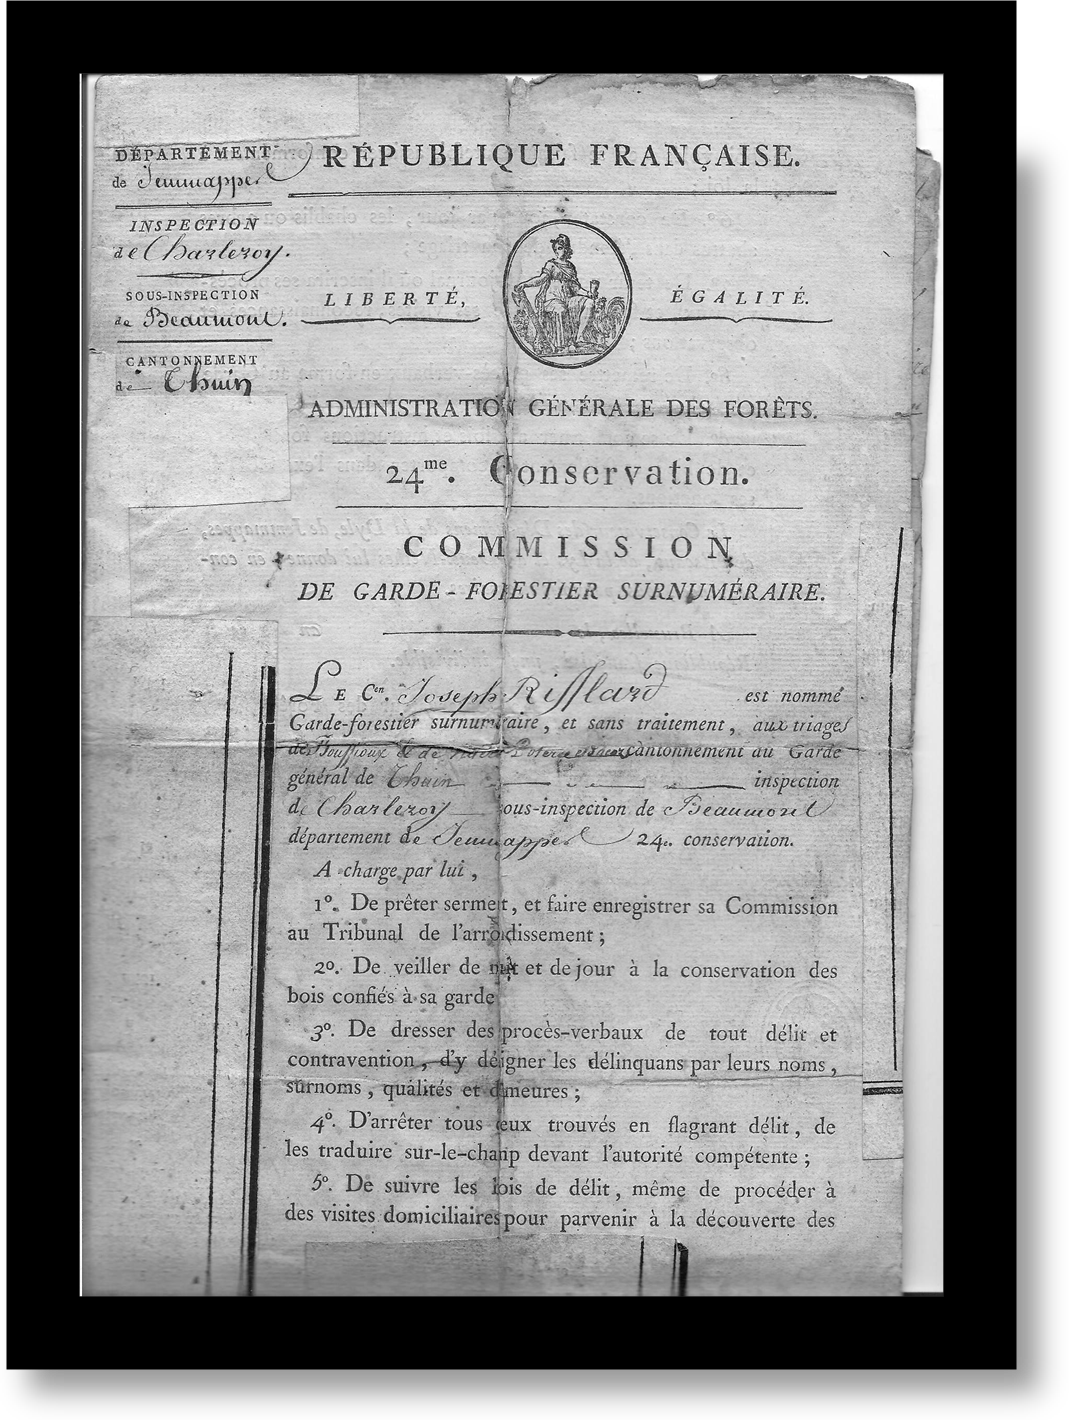 DÉPARTEMENT
de Jemmappes
INSPECTION
de Charleroy.
SOUS-INSPECTION
de Beaumont.
CANTONNEMENT
de Thuin
RÉPUBLIQUE FRANÇAISE.
LIBERTÉ,
ÉGALITÉ.
ADMINISTRATION GÉNÉRALE DES FORÊTS.
24me. Conservation.
COMMISSION
DE GARDE-FORESTIER SURNUMÉRAIRE.
LE Cen. Joseph Rifflard est nommé
Garde-forestier surnuméraire, et sans traitement, aux triages
de cantonnement du Garde
général de Thuin inspection
de Charleroy sous-inspection de Beaumont
département de Jemmappes 24e. conservation.
A charge par lui,
1º. De prêter serment, et faire enregistrer sa Commission
au Tribunal de l'arrondissement;
2º. De veiller de nuit et de jour à la conservation des
bois confiés à sa garde
3º. De dresser des procès-verbaux de tout délit et
contravention, d'y désigner les délinquans par leurs noms,
surnoms, qualités et demeures;
4º. D'arrêter tous ceux trouvés en flagrant délit, de
les traduire sur-le-champ devant l'autorité compétente;
5º. De suivre les bois de délit, même de procéder à
des visites domiciliaires pour parvenir à la découverte des